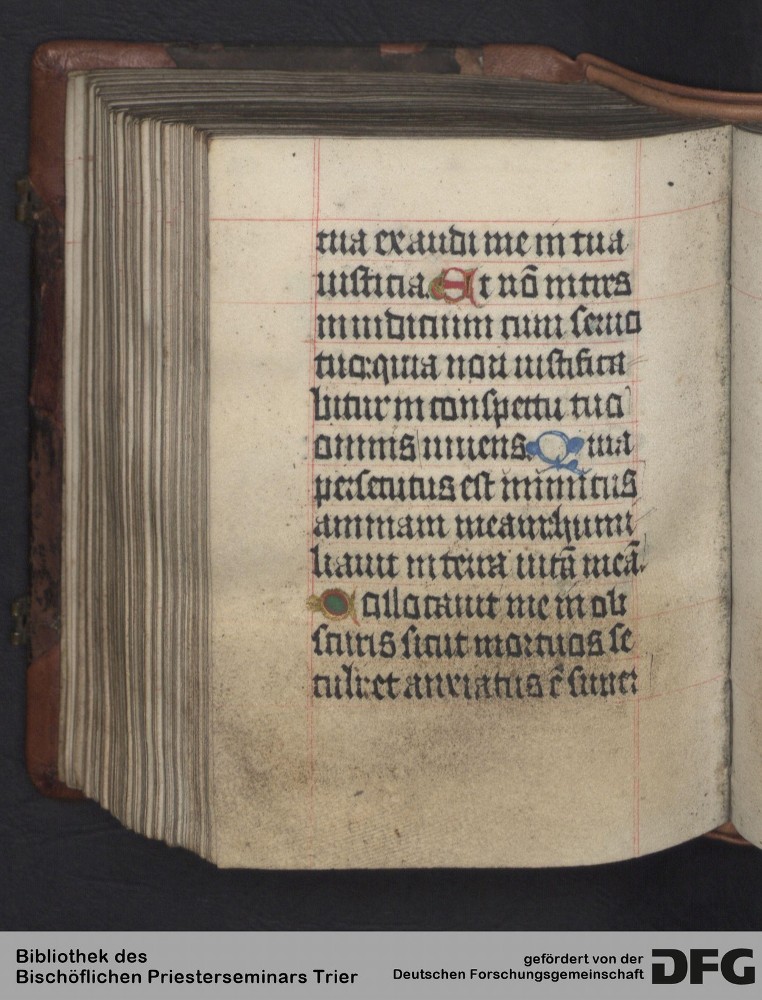 tua exaudi me in tua
iusticia. Et nō intres
in iudicium cum seruo
tuo: quia non iustifica
bitur in conspectu tuo
omnis uiuens. Quia
persecutus est inimicus
animam meam: humi
liauit in terra uitā meā.
Collocauit me in ob
scuris sicut mortuos se
culi: et anxiatus ē super
Bibliothek des
Bischöflichen Priesterseminars Trier
gefördert von der
Deutschen Forschungsgemeinschaft
DFG